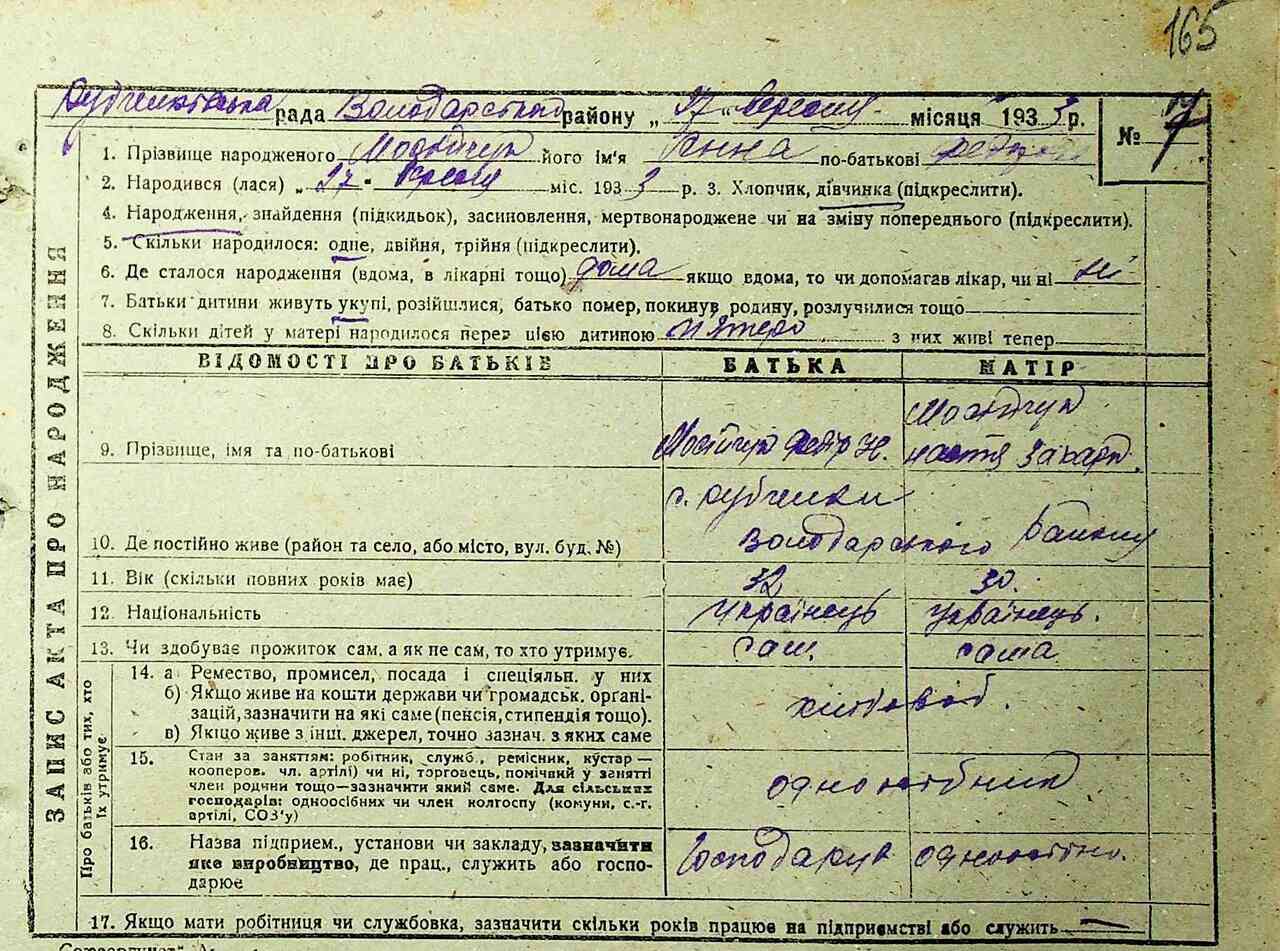 165
Дубченківська рада Володарського району „ 27 “ вересня місяця 1933 р.
№ 7
1. Прізвище народженого Мосійчук його ім'я Анна по-батькові
2. Народився (лася) „ 27 “ вересня міс. 1933 р. 3. Хлопчик, дівчинка (підкреслити).
4. Народження, знайдення (підкидьок), засиновлення, мертвонароджене чи на зміну попереднього (підкреслити).
5. Скільки народилося: одне, двійня, трійня (підкреслити).
6. Де сталося народження (вдома, в лікарні тощо) дома якщо вдома, то чи допомагав лікар, чи ні ні
7. Батьки дитини живуть укупі, розійшлися, батько помер, покинув родину, розлучилися тощо
8. Скільки дітей у матері народилося перед цією дитиною п'ятеро з них живі тепер
ВІДОМОСТІ ПРО БАТЬКІВ БАТЬКА МАТІР
ЗАПИС АКТА ПРО НАРОДЖЕННЯ
9. Прізвище, імя та по-батькові Мосійчук Федір Н. Мосійчук Настя Захарв.
10. Де постійно живе (район та село, або місто, вул. буд. №) с. Дубченки Володарського району
11. Вік (скільки повних років має) 32 30.
12. Національність українець українець.
13. Чи здобуває прожиток сам, а як не сам, то хто утримує. сам. сама
Про батьків або тих, хто їх утримує
14. а) Ремество, промисел, посада і спеціяльн. у них
б) Якщо живе на кошти держави чи громадськ. органі-
зацій, зазначити на які саме (пенсія, стипендія тощо).
в) Якщо живе з інш. джерел, точно зазнач. з яких саме
хлібороб.
15. Стан за заняттям: робітник, служб., ремісник, кустар —
кооперов. чл. артілі) чи ні, торговець, помічний у занятті
член родини тощо—зазначити який саме. Для сільських
господарів: одноосібних чи член колгоспу (комуни, с.-г.
артілі, СОЗ'у)
одноосібник
16. Назва підприєм., установи чи закладу, зазначити
яке виробництво, де прац., служить або госпо-
дарює
Господарює одноосібно.
17. Якщо мати робітниця чи службовка, зазначити скільки років працює на підприємстві або служить —